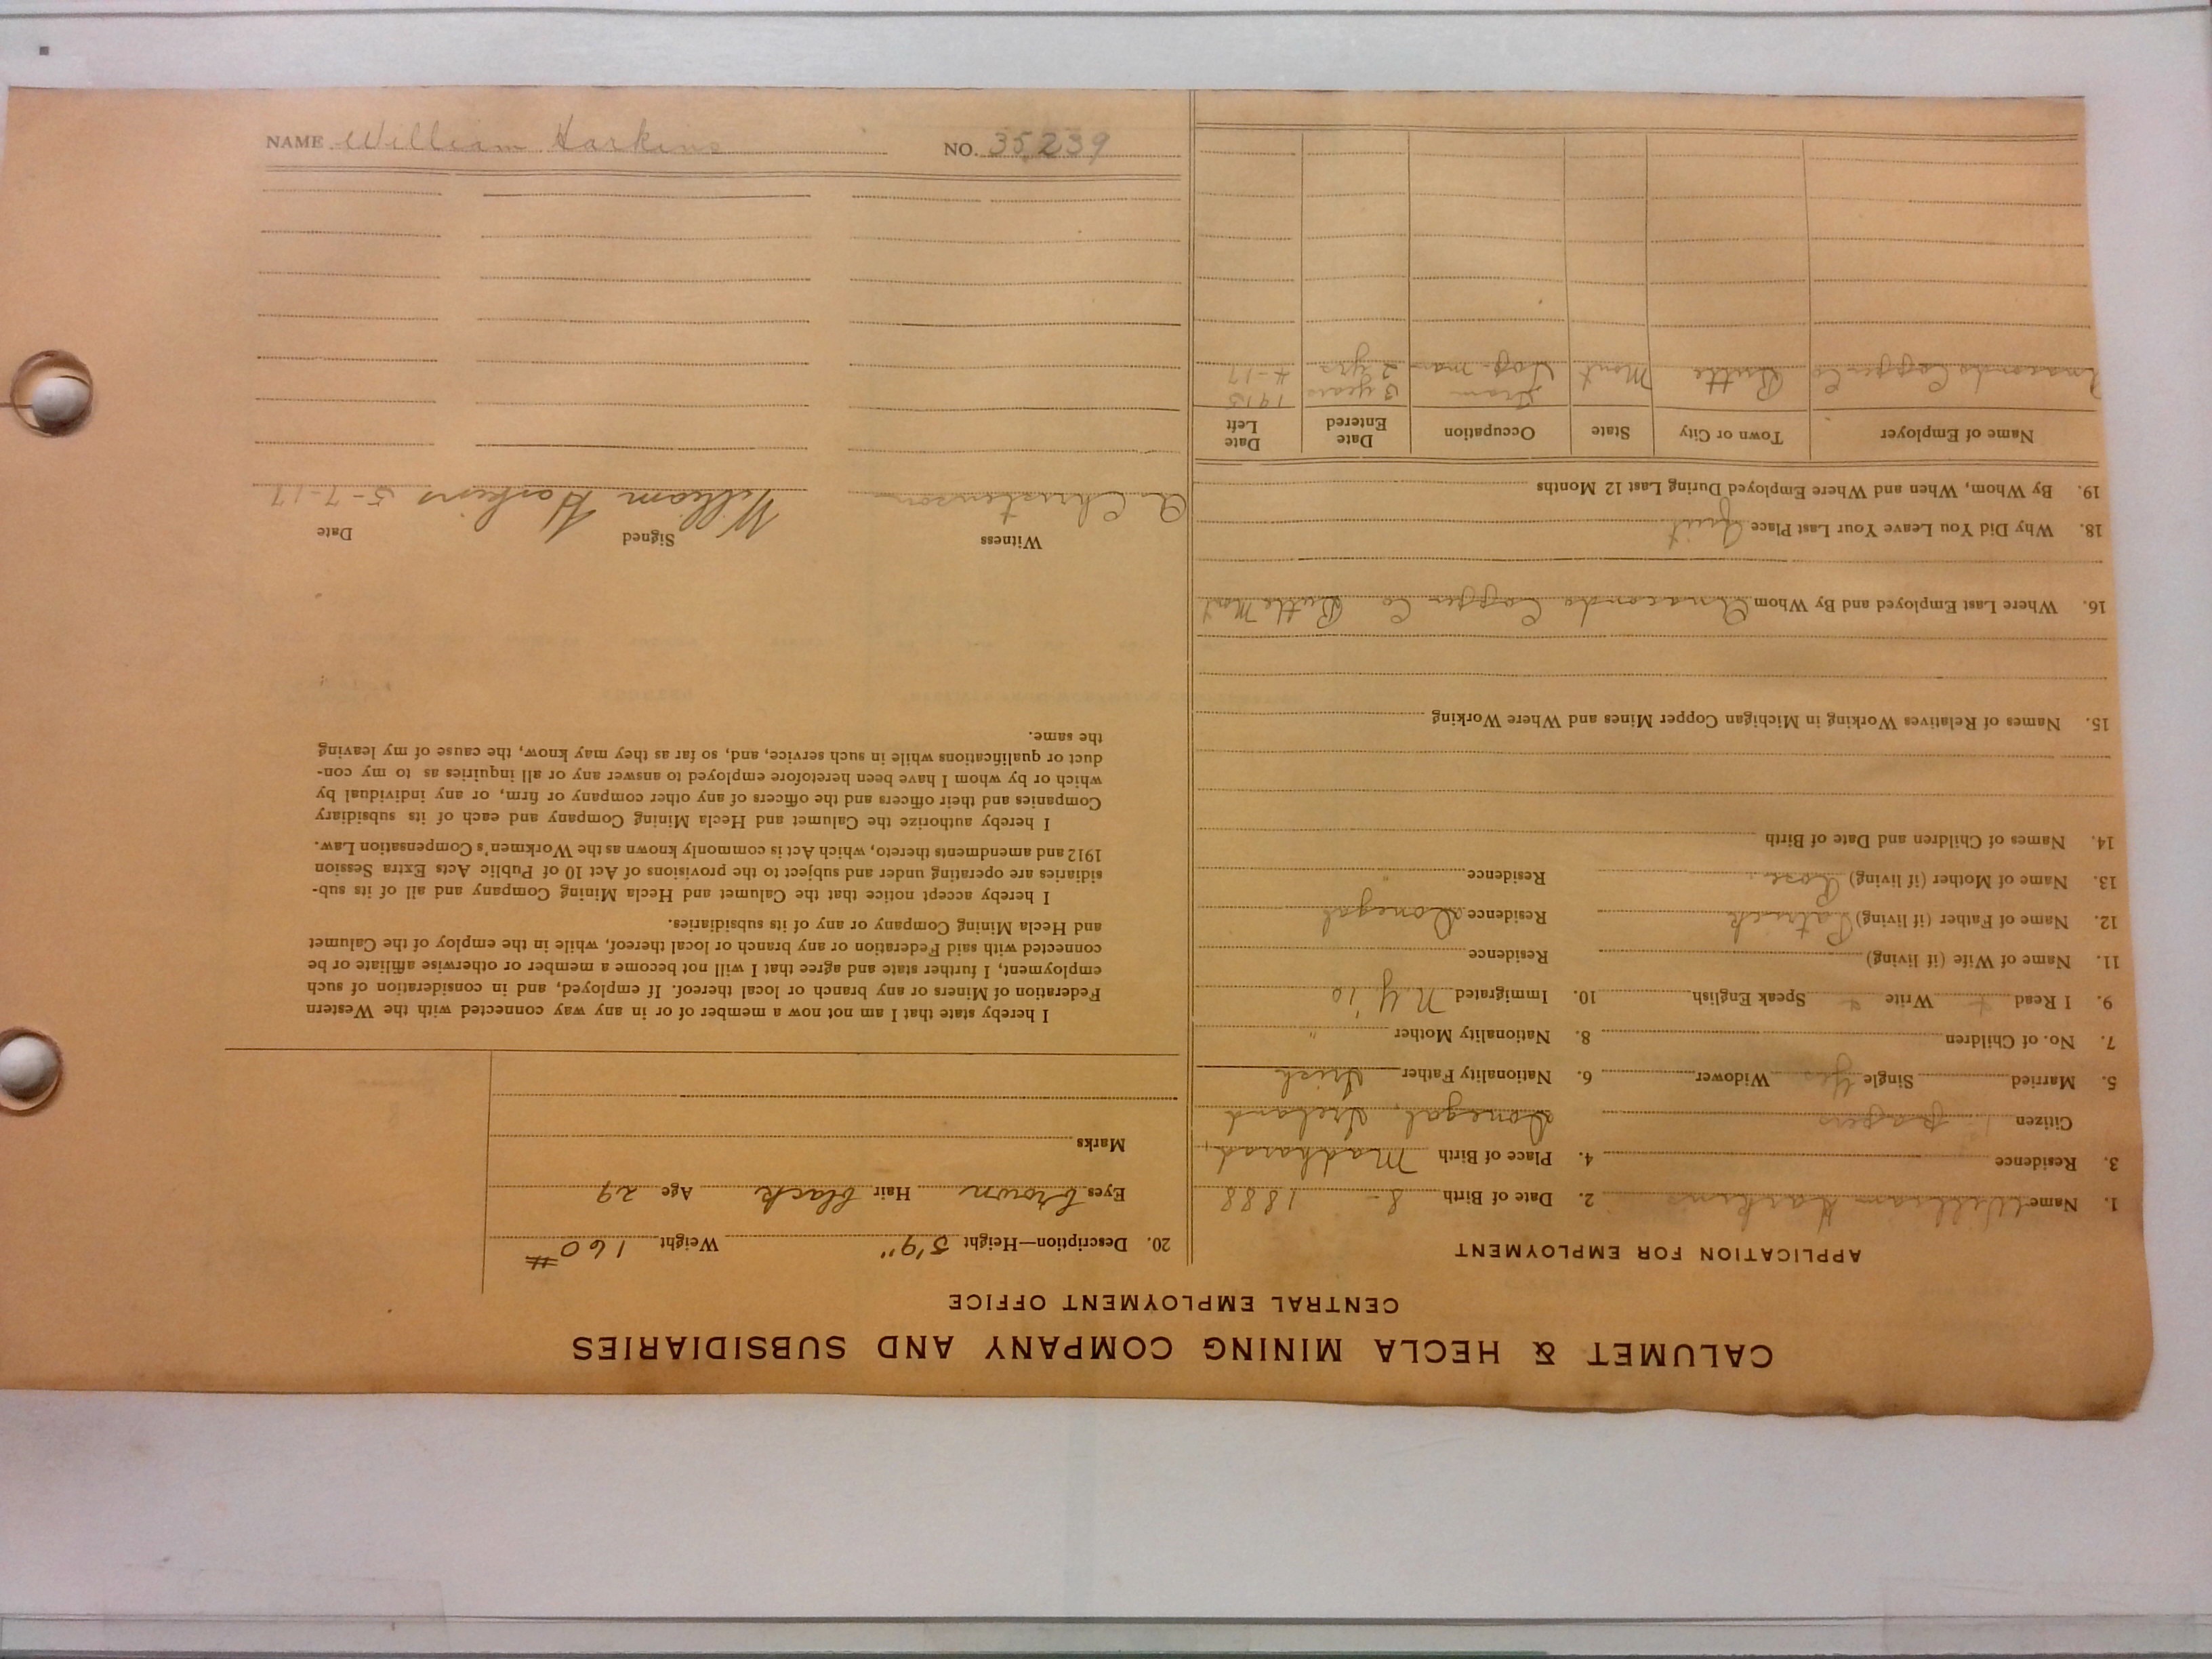 CALUMET & HECLA MINING COMPANY AND SUBSIDIARIES
CENTRAL EMPLOYMENT OFFICE
APPLICATION FOR EMPLOYMENT
1. Name William Harkins 2. Date of Birth 8 - 1888
3. Residence 4. Place of Birth
Citizen 1 papers Donegal, Ireland
5. Married Single Yes Widower 6. Nationality Father Irish
7. No. of Children 8. Nationality Mother "
9. I Read + Write + Speak English 10. Immigrated N.Y. '10
11. Name of Wife (if living) Residence
12. Name of Father (if living) Patrick Residence Donegal
13. Name of Mother (if living) Rose Residence "
14. Names of Children and Date of Birth
15. Names of Relatives Working in Michigan Copper Mines and Where Working
16. Where Last Employed and By Whom Anaconda Copper Co Butte Mont
18. Why Did You Leave Your Last Place Quit
19. By Whom, When and Where Employed During Last 12 Months
Name of Employer Town or City State Occupation Date Entered Date Left
Tram 3 years 1915
Anaconda Copper Co Butte Mont man 2 yrs 4-17
20. Description—Height 5'9" Weight 160 #
Eyes brown Hair black Age 29
Marks
I hereby state that I am not now a member of or in any way connected with the Western
Federation of Miners or any branch or local thereof. If employed, and in consideration of such
employment, I further state and agree that I will not become a member or otherwise affiliate or be
connected with said Federation or any branch or local thereof, while in the employ of the Calumet
and Hecla Mining Company or any of its subsidiaries.
I hereby accept notice that the Calumet and Hecla Mining Company and all of its sub-
sidiaries are operating under and subject to the provisions of Act 10 of Public Acts Extra Session
1912 and amendments thereto, which Act is commonly known as the Workmen's Compensation Law.
I hereby authorize the Calumet and Hecla Mining Company and each of its subsidiary
Companies and their officers and the officers of any other company or firm, or any individual by
which or by whom I have been heretofore employed to answer any or all inquiries as to my con-
duct or qualifications while in such service, and, so far as they may know, the cause of my leaving
the same.
Witness Signed Date
A. Christenson William Harkins 5-7-17
NAME William Harkins NO. 35,239